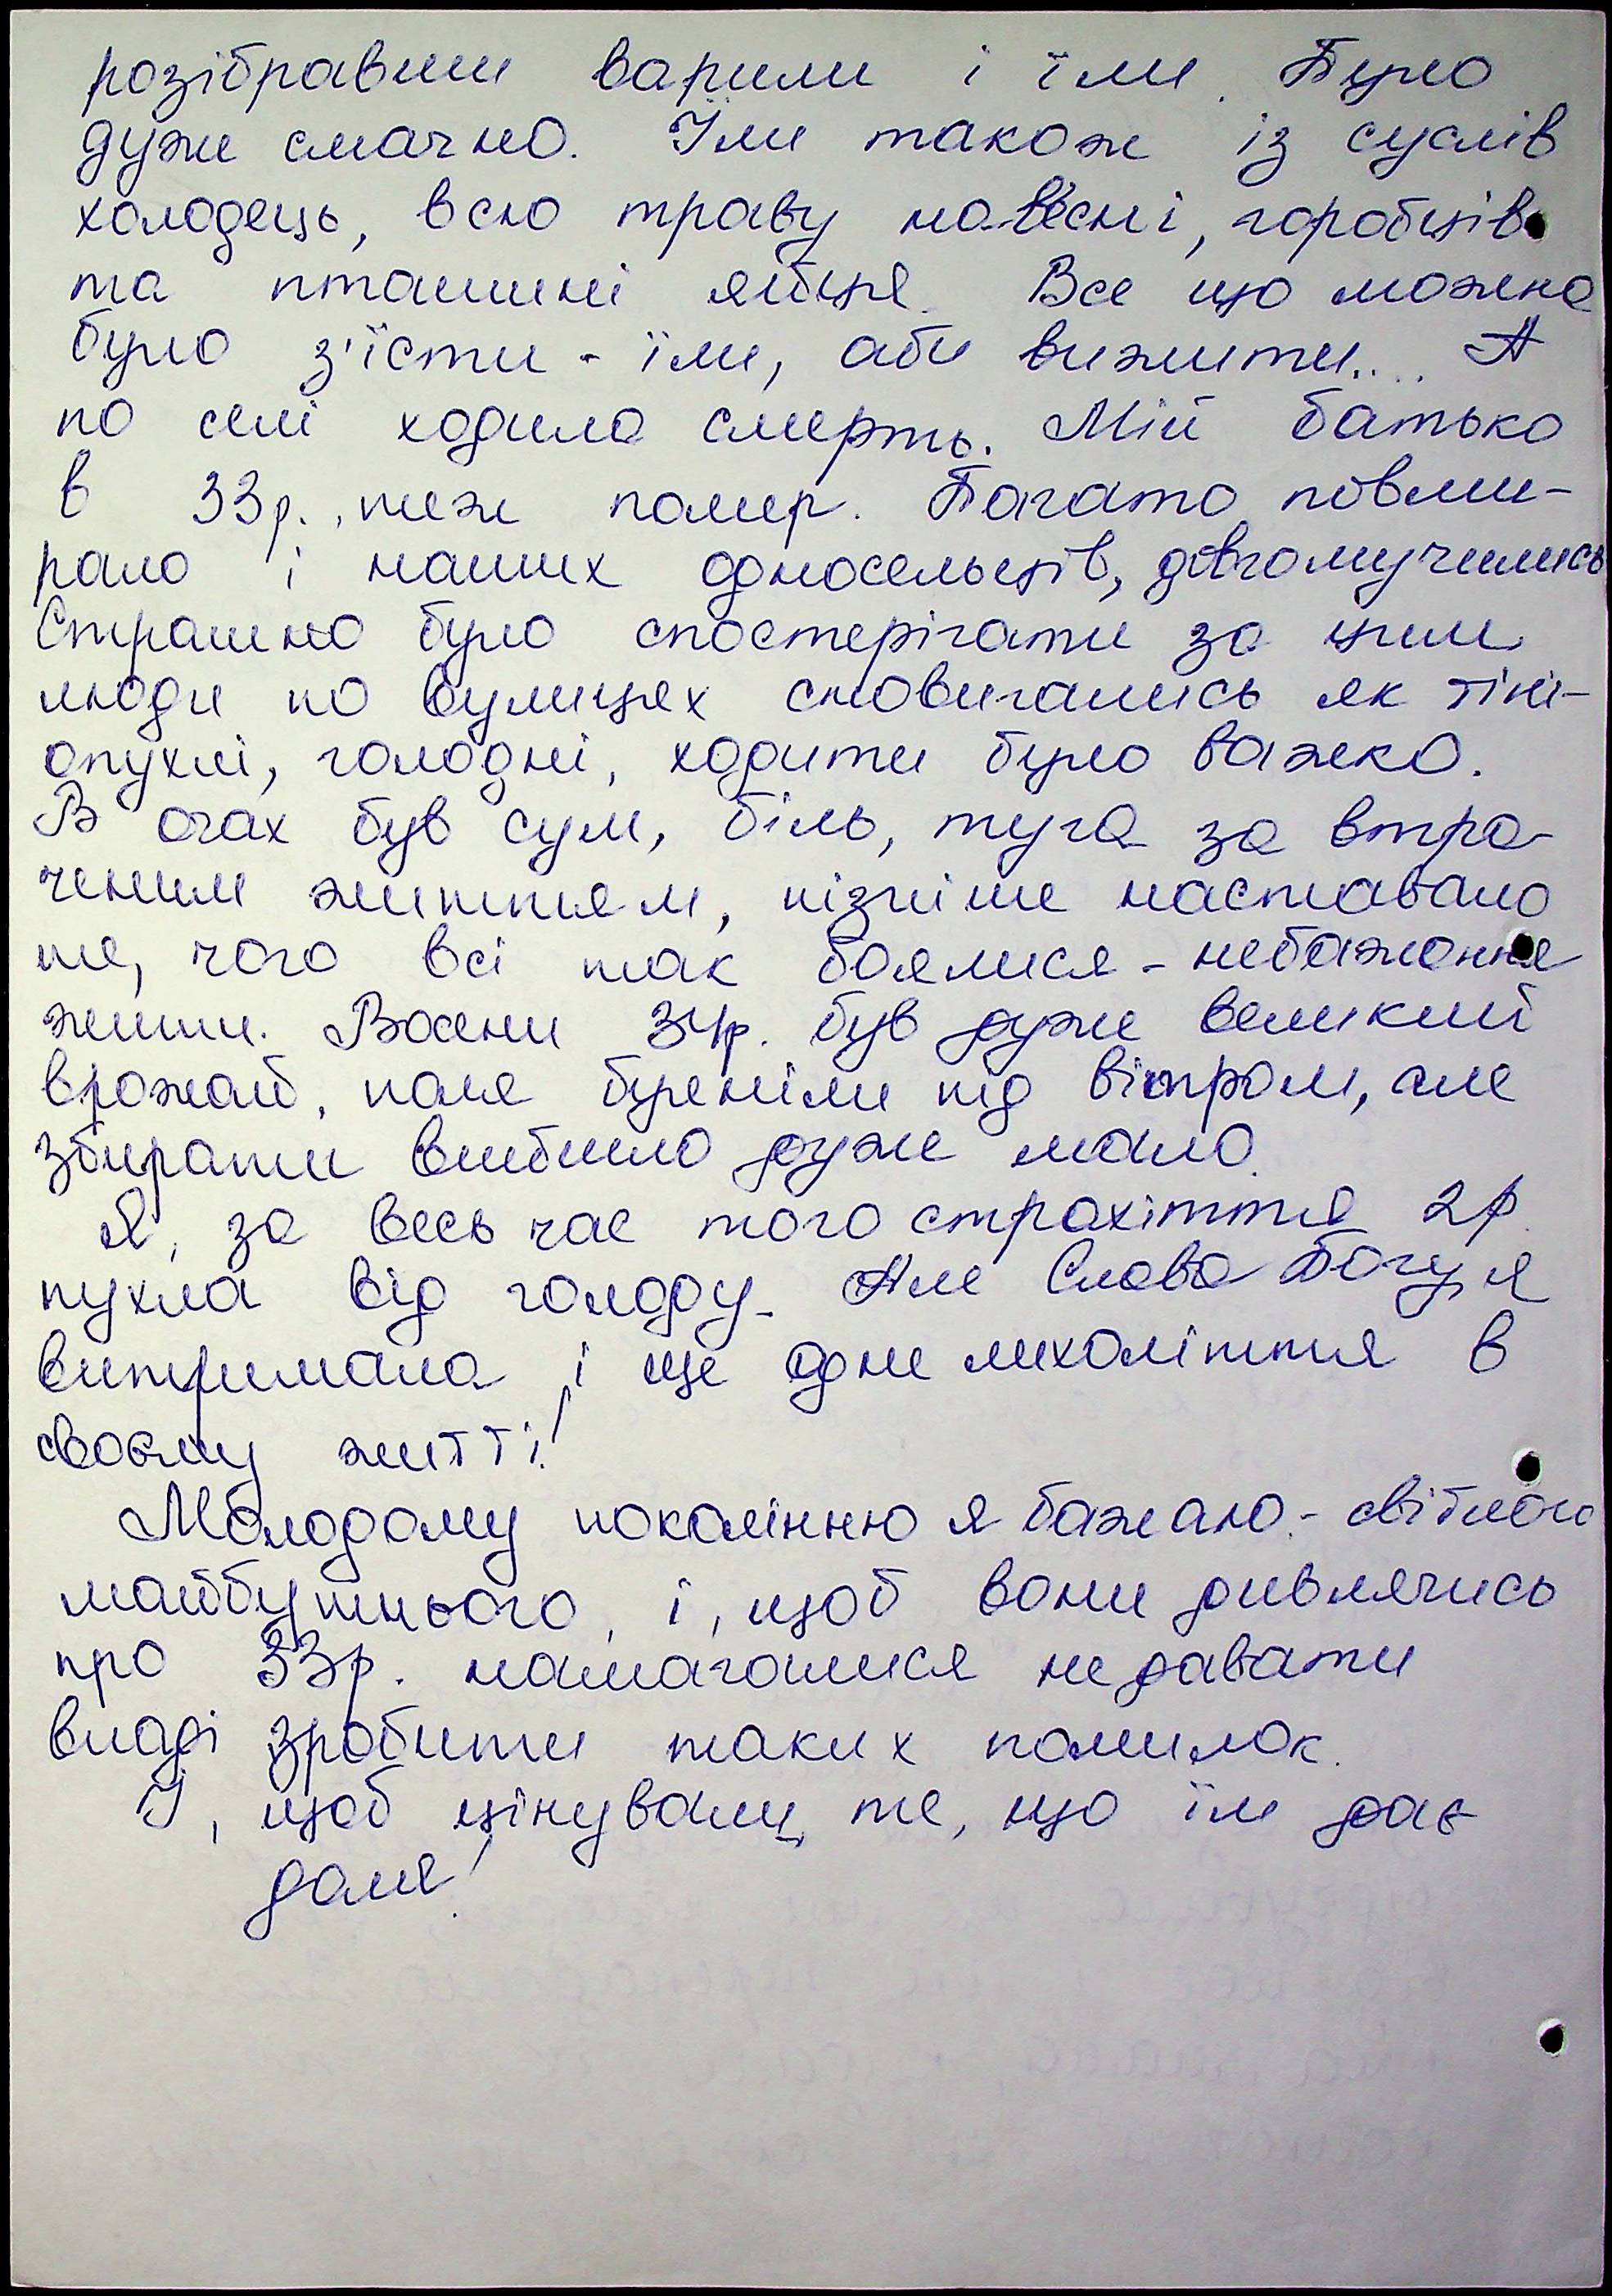 розібравши варили і їли. Було
дуже смачно. Їли також із суслів
холодець, всю траву на весні, горобців
та пташині яйця. Все що можна
було з'їсти - їли, аби вижити.... А
по селі ходила смерть. Мій батько
в 33р., теж помер. Багато повми-
рало і наших односельців, довго мучились
Страшно було спостерігати за цим
люди по вулицях сновигались як тіні-
опухлі, голодні, ходити було важко.
В очах був сум, біль, туга за втра-
ченим життям, пізніше наставало
те, чого всі так боялися - небажання
жити. Восени 34р. був дуже великий
врожай, поля буреніли під вітром, але
збирати вийшло дуже мало.
Я, за весь час того страхіття 2р.
пухла від голоду. Але Слава Богу, я
витримала і ще одне лихоліття в
своєму житті!
Молодому поколінню я бажаю - світлого
майбутнього, і, щоб вони дивлячись
про 33р. намагалися не давати
владі зробити таких помилок.
І, щоб цінували те, що їм дає
доля!